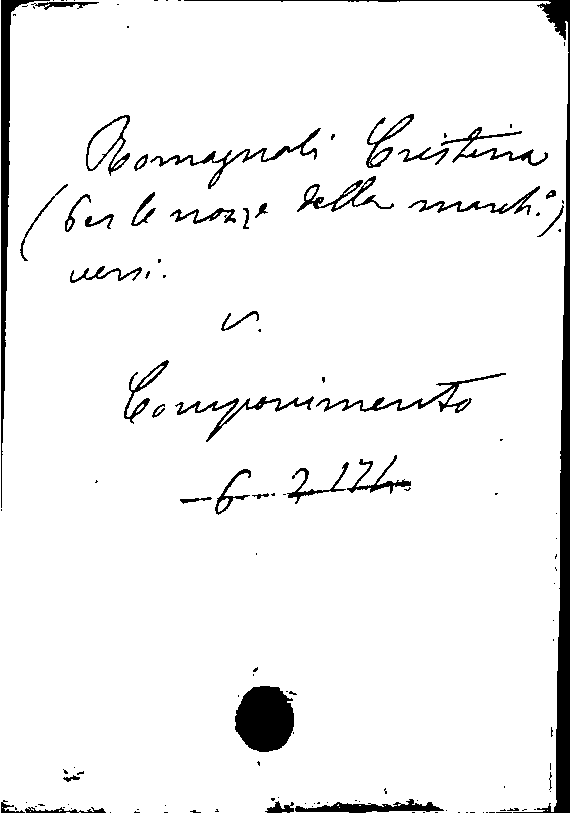 Romagnoli Cristina
(Per le nozze della march.ª)
versi.
v.
Componimento
6 2 171